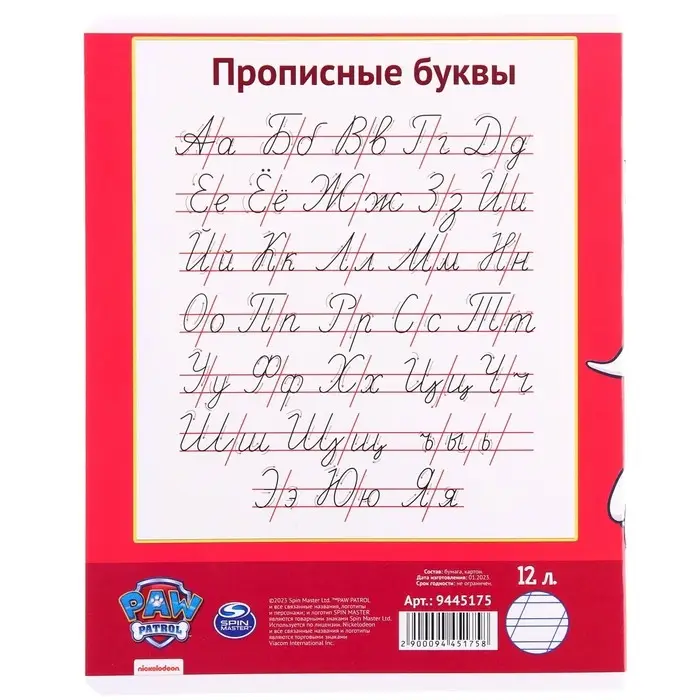 Прописные буквы
Аа Бб Вв Гг Дд
Ее Ёё Жж Зз Ии
Йй Кк Лл Мм Нн
Оо Пп Рр Сс Тт
Уу Фф Хх Цц Чч
Шш Щщ ъ ы ь
Ээ Юю Яя
PAW
PATROL
nickelodeon
SPIN
MASTER™
©2023 Spin Master Ltd. ™PAW PATROL
и все связанные названия, логотипы
и персонажи; и логотип SPIN MASTER
являются товарными знаками Spin Master Ltd.
Используется по лицензии. Nickelodeon
и все связанные названия и логотипы
являются торговыми знаками
Viacom International Inc.
Состав: бумага, картон.
Дата изготовления: 01.2023.
Срок годности: не ограничен.
Арт.: 9445175
2 900094 451758
12 л.